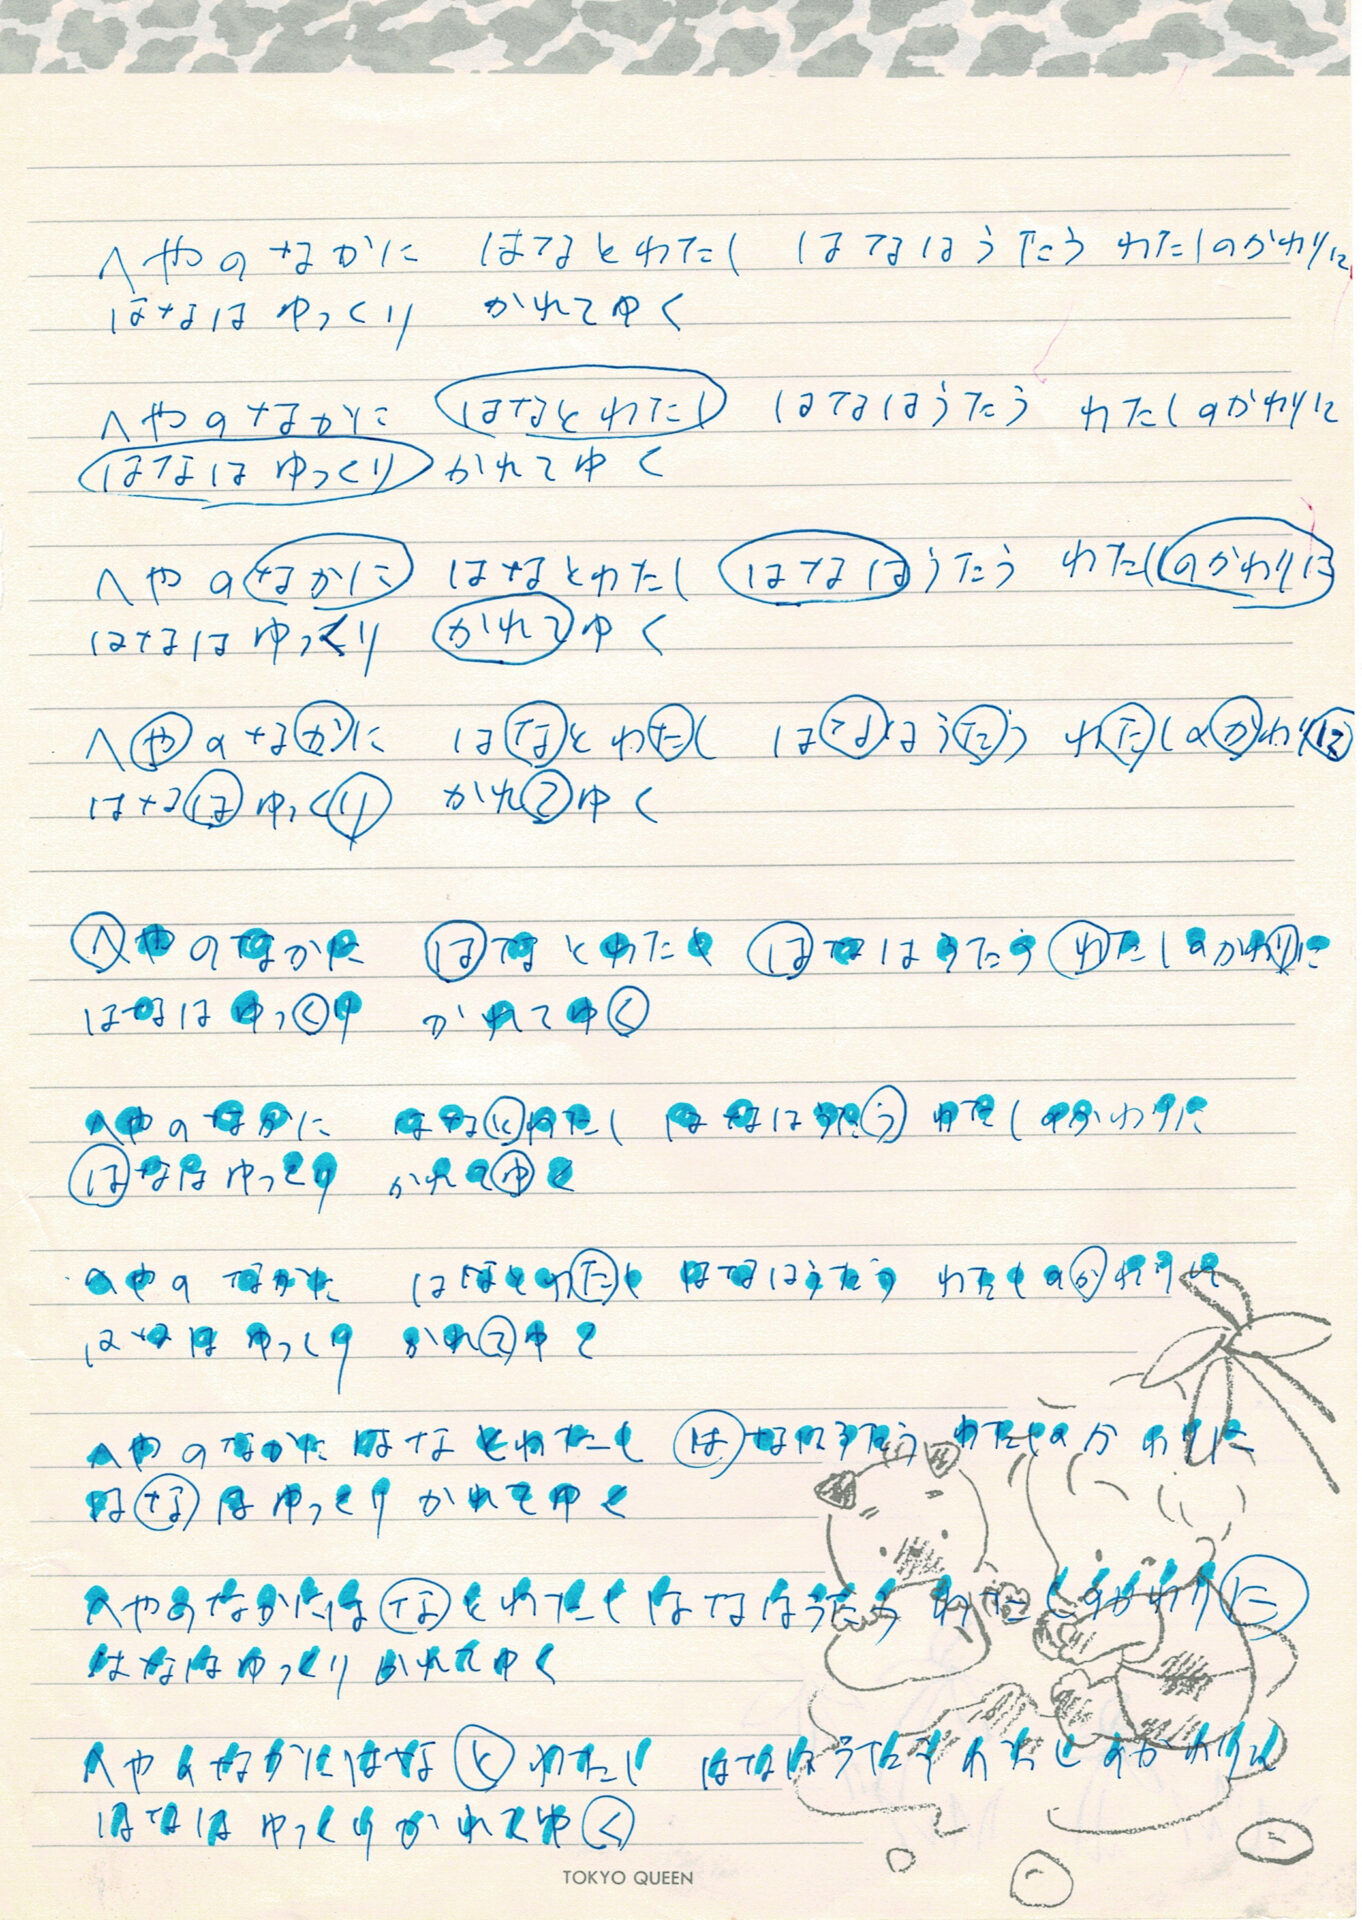 へやのなかに　はなとわたし　はなはうたう　わたしのかわりに
はなは　ゆっくり　かれてゆく
へやのなかに　はなとわたし　はなはうたう　わたしのかわりに
はなは　ゆっくり　かれてゆく
へやのなかに　はなとわたし　はなはうたう　わたしのかわりに
はなは　ゆっくり　かれてゆく
へやのなかに　はなとわたし　はなはうたう　わたしのかわりに
はなは　ゆっくり　かれてゆく
へやのなかに　はなとわたし　はなはうたう　わたしのかわりに
はなは　ゆっくり　かれてゆく
へやのなかに　はなとわたし　はなはうたう　わたしのかわりに
はなは　ゆっくり　かれてゆく
へやのなかに　はなとわたし　はなはうたう　わたしのかわりに
はなは　ゆっくり　かれてゆく
へやのなかに　はなとわたし　はなはうたう　わたしのかわりに
はなは　ゆっくり　かれてゆく
へやのなかに　はなとわたし　はなはうたう　わたしのかわりに
はなは　ゆっくり　かれてゆく
へやのなかに　はなとわたし　はなはうたう　わたしのかわりに
はなは　ゆっくり　かれてゆく
TOKYO QUEEN